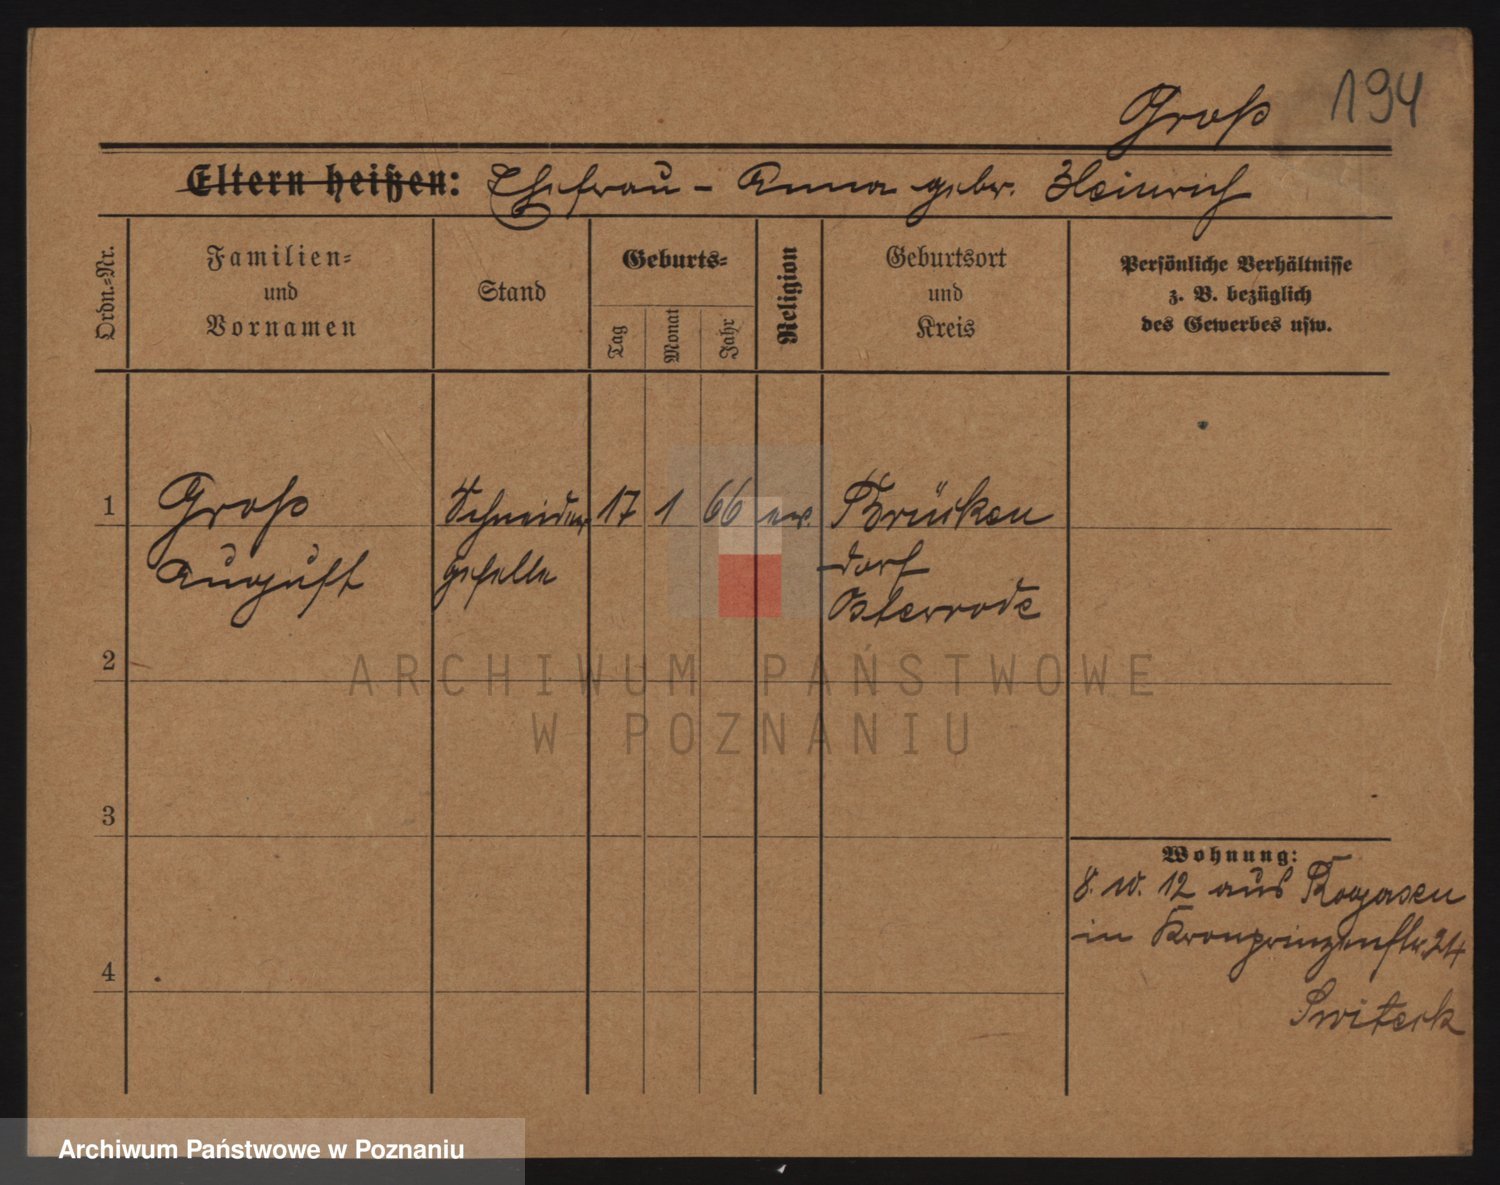 Groß 194
Eltern heißen: Ehefrau - Anna gebr. Heinrich
Ordn.-Nr.
Familien-
und
Vornamen
Stand
Geburts-
Tag
Monat
Jahr
Religion
Geburtsort
und
Kreis
Persönliche Verhältnisse
z. B. bezüglich
des Gewerbes usw.
1 Groß Schneider 17 1 66 ev. Brücken
August geselle dorf
Osterrode
2
3
4
Wohnung:
8. 10. 12 aus Rogasen
in Kronprinzenstr. 24
Switeck
ARCHIWUM PAŃSTWOWE
W POZNANIU
Archiwum Państwowe w Poznaniu